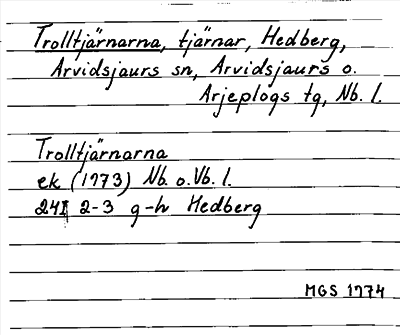 Trolltjärnarna, tjärnar, Hedberg,
Arvidsjaurs sn, Arvidsjaurs o.
Arjeplogs tg, Nb. l.
Trolltjärnarna
ek (1973) Nb. o. Vb. l.
24I 2-3 g-h Hedberg
MGS 1974